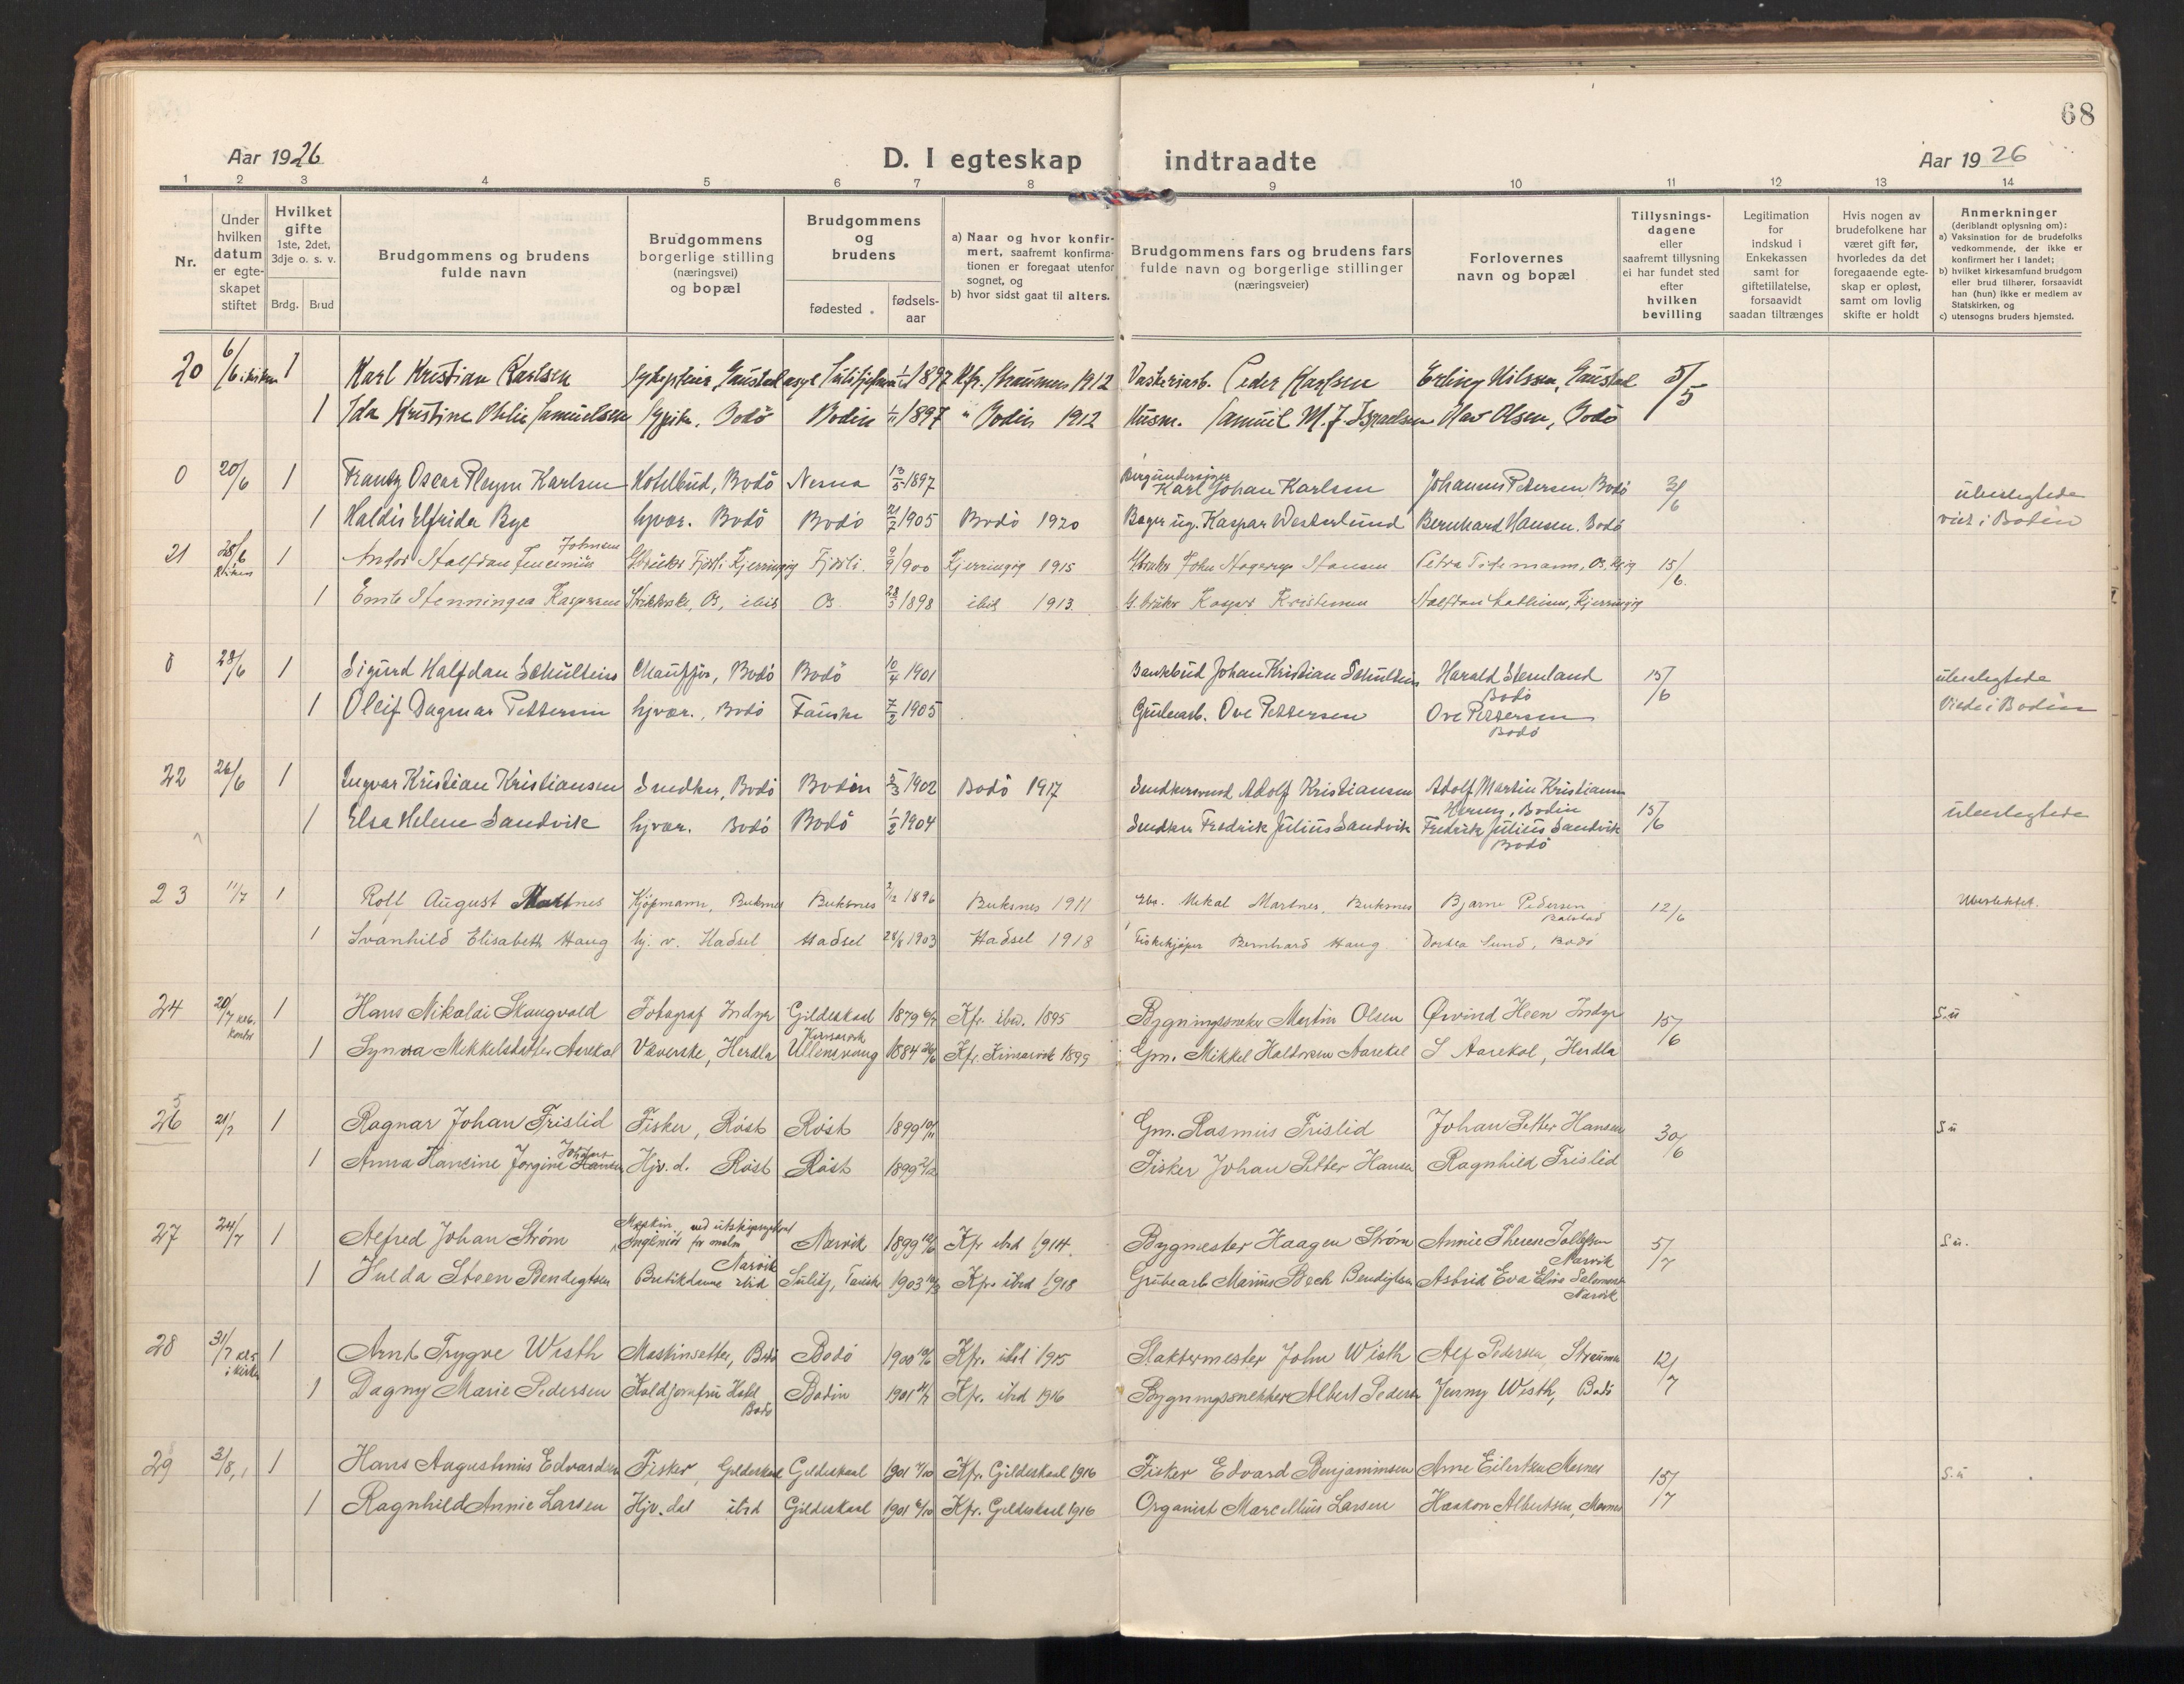 68
Aar 1926 D. I egteskap indtraadte Aar 1926
1 2 3 4 5 6 7 8 9 10 11 12 13 14
Nr.
Under hvilken datum er egteskapet stiftet
Hvilket gifte 1ste, 2det, 3dje o. s. v.
Brdg. Brud
Brudgommens og brudens fulde navn
Brudgommens borgerlige stilling (næringsvei) og bopæl
Brudgommens og brudens
fødested fødselsaar
a) Naar og hvor konfirmert, saafremt konfirmationen er foregaaet utenfor sognet, og
b) hvor sidst gaat til alters.
Brudgommens fars og brudens fars fulde navn og borgerlige stillinger (næringsveier)
Forlovernes navn og bopæl
Tillysningsdagene eller saafremt tillysning ei har fundet sted efter hvilken bevilling
Legitimation for indskud i Enkekassen samt for giftetillatelse, forsaavidt saadan tiltrænges
Hvis nogen av brudefolkene har været gift før, hvorledes da det foregaaende egteskap er opløst, samt om lovlig skifte er holdt
Anmerkninger (deriblandt oplysning om):
a) Vaksination for de brudefolks vedkommende, der ikke er konfirmert her i landet;
b) hvilket kirkesamfund brudgom eller brud tilhører, forsaavidt han (hun) ikke er medlem av Statskirken, og
c) utensogns bruders hjemsted.
20 6/6 1 Karl Kristian Karlsen 1897 Kfr. 1912 Peder Karlsen Erling Nilssen, Gaustad 5/5
1 Ida Kristine Samuelsen Bodö Bodin 1/11 1897 " Bodin 1912 Samuel M. J. Israelsen Olav Olsen, Bodö
0 20/6 1 Frantz Oscar Pleym Karlsen Hotelbud, Bodö Nesna 13/5 1897 Karl Johan Karlsen Johannes Petersen Bodö 3/6 ubeslegtede
1 Haldis Elfrida Bye hjvær. Bodö Bodö 21/2 1905 Bodö 1920 Kaspar Westerlund Bernhard Hansen. Bodö viet i Bodin
21 28/6 1 Johnsen
Halfdan Kjerringöy 9/9 1900 Kjerringöy 1915 John Hansen Petra Tidemann, 15/6
1 Kaspersen Os, ibid Os 1898 ibid 1913 Kaspar Kristensen Kjerringöy
0 28/6 1 Sigurd Halfdan Schultius Chauffør, Bodö Bodö 10/4 1901 Bankbud Johan Kristian Schultius Harald Stemland Bodö 15/6 ubeslegtede
1 Oleif Dagmar Pettersen hjvær., Bodö Fauske 7/2 1905 Ove Pettersen Ove Pettersen Bodö Viede i Bodin
22 26/6 1 Ingvar Kristian Kristiansen Snedker, Bodö Bodin 5/3 1902 Bodö 1917 Snedkersvend Adolf Kristiansen Adolf Martin Kristiansen
Bodin 15/6
1 Elsa Helene Sandvik hjvær. Bodö Bodö 1/2 1904 Snedker Fredrik Julius Sandvik Fredrik Julius Sandvik Bodö ubeslegtede
23 11/7 1 Rolf August Martnes Kjøpmann, Buksnes Buksnes 1896 Buksnes 1911 Mekal Martnes, Buksnes Bjarne Pedersen Balstad 12/6 Ubeslektet.
1 Svanhild Elisabeth Haug hj. v. Hadsel Hadsel 1903 Hadsel 1918 Fiskekjøper Bernhard Haug Dorthea Lund, Bodö
24 20/7 1 Hans Nikolai Skaugvold Fotograf Indyr Gildeskaal 1879 Kfr. ibid. 1895 Martin Olsen Øivind Heen Indyr 15/6 S.u
1 Synva Mekkelsdatter Aarekol Væverske, Herdla Kinsarvik Ullensvang 1884 Kfr. Kinsarvik 1899 Gm. Mikkel Haldorsen Aarekol S Aarekol, Herdla
5
26 21/7 1 Ragnar Johan Frislid Fisker, Röst Röst 1899 Gm. Rasmus Frislid Johan Petter Hansen 30/6 S.u
1 Anna Hansine Jorgine Johansen Hansen Hjv. d. Röst Röst 1899 Fisker Johan Petter Hansen Ragnhild Frislid
27 24/7 1 Alfred Johan Strøm Maskin Ingeniör ved for malm Narvik Narvik 1899 Kfr ibid 1914. Bygmester Haagen Strøm Annie Therese Tollefsen Narvik 5/7 S.u.
1 Hulda Steen Bendigtsen Butikdame ibid 1903 Kfr ibid 1918 Grubearb Marius Bech Bendigtsen Astrid Eva Elise Narvik
28 31/7 kl 5 i kirken 1 Arnt Trygve Wisth Maskinsetter, Bodö Bodö 1900 Kfr. ibid 1915 Slaktermester John Wisth Alf Pedersen, Straumen 12/7
1 Dagny Marie Pedersen Koldjomfru Hotel Bodö Bodin 1901 Kfr. ibid 1916 Bygningssnekker Albert Pedersen Jenny Wisth, Bodö
29 3/8 1 Hans Augustinius Edvardsen Fisker, Gildeskaal Gildeskaal 1901 Kfr. Gildeskaal 1916 Fisker Edvard Benjaminsen Arne Eilertsen 15/7 S.u
1 Ragnhild Annie Larsen Hjv. dat ibid Gildeskaal 1901 Kfr. Gildeskaal 1916 Organist Marcellius Larsen Haakon Albertsen,